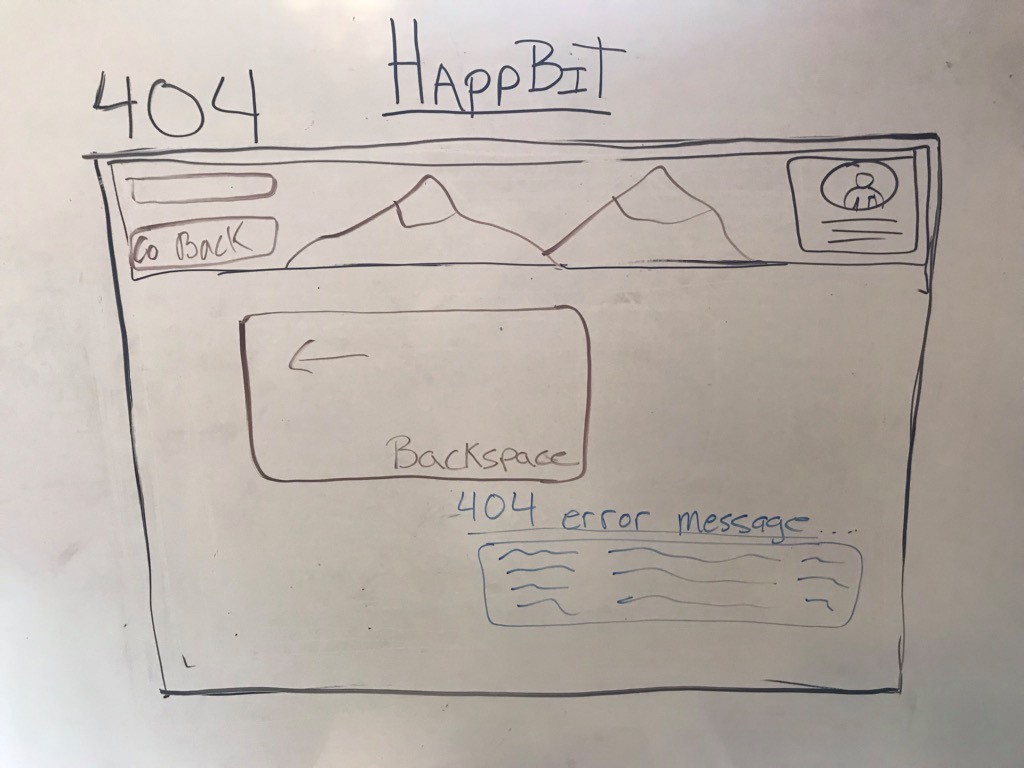 HAppBIT
404
Go Back
Backspace
404 error message....